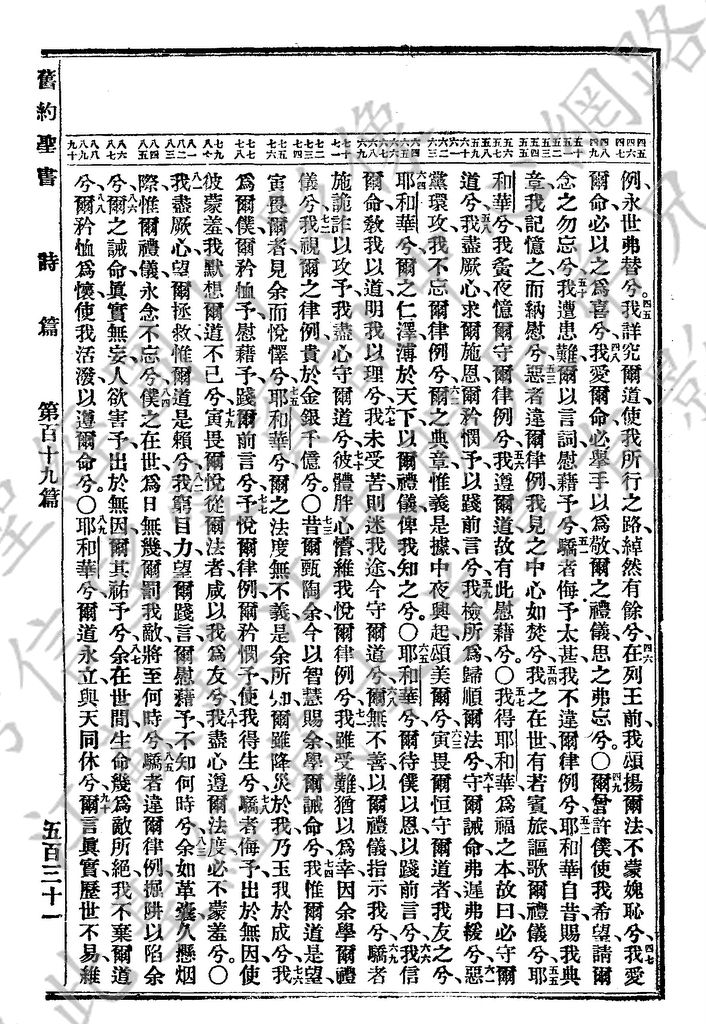 例、永世弗替兮。我詳究爾道、使我所行之路、綽然有餘兮、在列王前、我頌揚爾法、不蒙媿恥兮、我愛
爾命、必以之爲喜兮、我愛爾命、必舉手以爲敬、爾之禮儀、思之弗忘兮。〇爾曾許僕、使我希望、請爾
念之勿忘兮、我遭患難、爾以言詞慰藉予兮、驕者侮予太甚、我不違爾律例兮、耶和華自昔賜我典
章、我記憶之、而納慰兮、惡者違爾律例、我見之、中心如焚兮、我之在世、有若賓旅、謳歌爾禮儀兮、耶
和華兮、我夤夜憶爾、守爾律例兮、我遵爾道、故有此慰藉兮。〇我得耶和華爲福之本、故曰必守爾
道兮、我盡厥心、求爾施恩、爾矜憫予、以踐前言兮、我檢所爲、歸順爾法兮、守爾誡命、弗遲弗緩兮、惡
黨環攻、我不忘爾律例兮、爾之典章、惟義是據、中夜興起、頌美爾兮、寅畏爾、恒守爾道者、我友之兮、
耶和華兮、爾之仁澤、溥於天下、以爾禮儀、俾我知之兮。〇耶和華兮、爾待僕以恩、以踐前言兮、我信
爾命、敎我以道、明我以理兮、我未受苦、則迷我途、今守爾道兮、爾無不善、以爾禮儀指示我兮、驕者
施詭詐以攻予、我盡心守爾道兮、彼體胖心懵、維我悅爾律例兮、我雖受難、猶以爲幸、因余學爾禮
儀兮、我視爾之律例、貴於金銀千億兮。〇昔爾甄陶余、今以智慧賜余、學爾誡命兮、我惟爾道是望、
寅畏爾者、見余而悅懌兮、耶和華兮、爾之法度、無不義、是余所知、爾雖降災於我、乃玉我於成兮、我
爲爾僕、爾矜恤予、慰藉予、踐爾前言兮、予悅爾律例、爾矜憫予、使我得生兮、驕者侮予、出於無因、使
彼蒙羞、我默想爾道不已兮、寅畏爾、悅從爾法者、咸以我爲友兮、我盡心遵爾法度、必不蒙羞兮。〇
我盡厥心、望爾拯救、惟爾道是賴兮、我窮目力、望爾踐言、爾慰藉予、不知何時兮、余如革囊、久懸烟
際、惟爾禮儀、永念不忘兮、僕之在世、爲日無幾、爾罰我敵、將至何時兮、驕者違爾律例、掘阱以陷余
兮、爾之誡命、眞實無妄、人欲害予、出於無因、爾其祐予兮、余在世間、生命幾爲敵所絕、我不棄爾道
兮、爾矜恤爲懷、使我活潑、以遵爾命兮。〇耶和華兮、爾道永立、與天同休兮、爾言眞實、歷世不易、維
舊約聖書 詩篇 第百十九篇 五百三十一